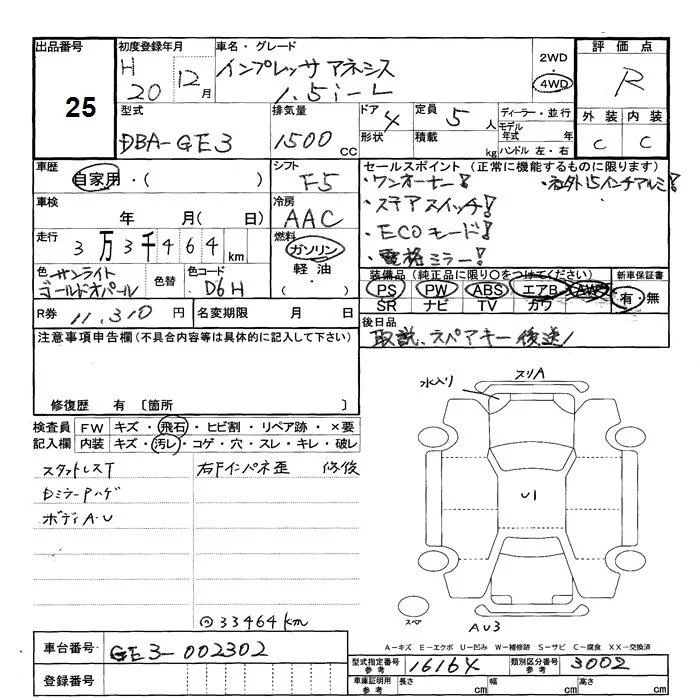 出品番号 25
初度登録年月 H 20 12月
車名・グレード インプレッサ アネシス
1.5i-L
2WD
4WD
評価点 R
外装 内装
C C
型式 DBA-GE3
排気量 1500 CC
ドア 4
形状
定員 5人
積載 kg
ディーラー・並行
モデル年式 年
ハンドル 左・右
車歴 自家用・( )
シフト F5
セールスポイント (正常に機能するものに限ります)
・ワンオーナー! ・社外15インチアルミ!
・ステアスイッチ!
・ECOモード!
・電格ミラー!
車検 年 月( 日)
冷房 AAC
走行 3万3千464km
燃料 ガソリン
軽油・
( )
色 サンライト
ゴールドオパール
色替
色コード D6H
装備品 (純正品に限り○をつけてください)
PS PW ABS エアB AW
SR ナビ TV カワ
新車保証書
有・無
R券 11,310円
名変期限 月 日
後日品
取説、スペアキー後送!
注意事項申告欄 (不具合内容等は具体的に記入して下さい)
修復歴 有 〔箇所 〕
検査員 FW キズ・飛石・ヒビ割・リペア跡・×要
記入欄 内装 キズ・汚レ・コゲ・穴・スレ・キレ・破レ
スタットレスT 右Fインパネ歪 修後
DミラーPハゲ
ボディA・U
33464km
水入り
スリA
U1
スペア
AU3
A-キズ E-エクボ U-凹み W-補修跡 S-サビ C-腐食 XX-交換済
車台番号 GE3-002302
登録番号
型式指定番号 参考 16164
類別区分番号 参考 3002
車庫証明用 参考 長さ cm 幅 cm 高さ cm